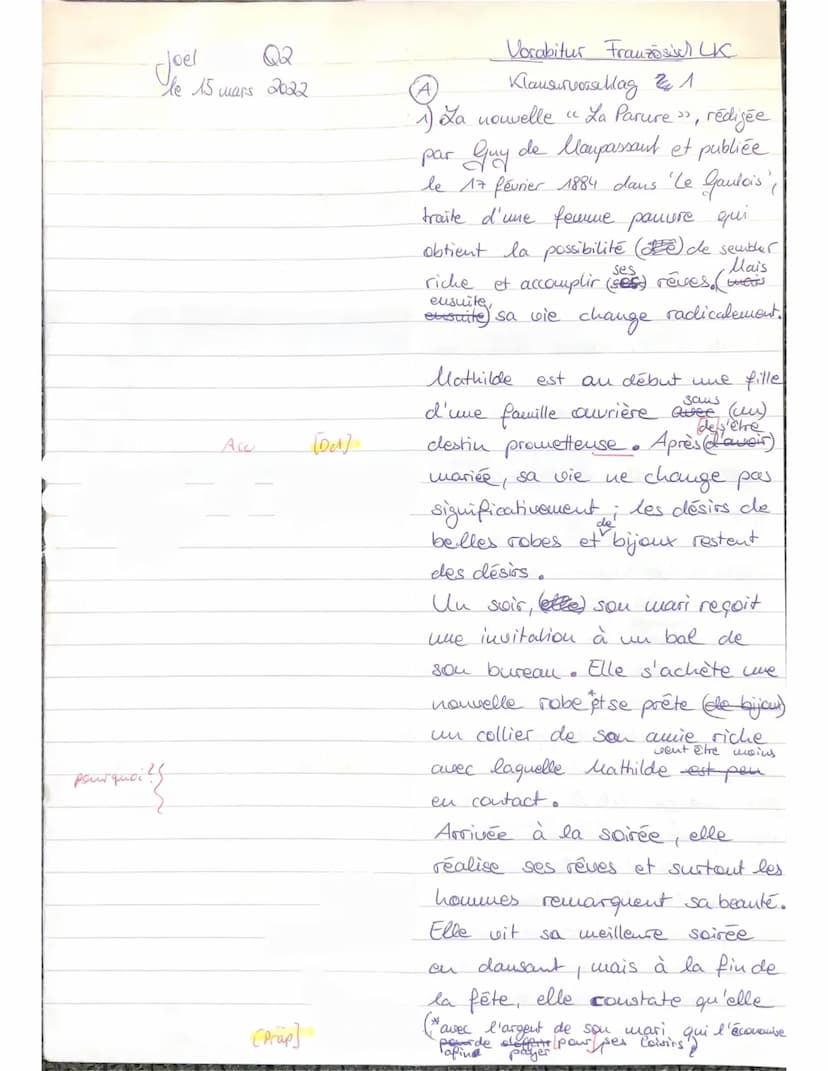 Joël Q2 Vorabitur Französisch LK
le 15 mars 2022 (A) Klausurvorschlag 1
1) La nouvelle “La Parure”, rédigée
par Guy de Maupassant et publiée
le 17 février 1884 dans 'Le Gaulois',
traite d'une femme pauvre qui
obtient la possibilité de sembler
riche et accomplir (ses) ses rêves. (mais Mais
ensuite) ensuite, sa vie change radicalement.
Mathilde est au début une fille
d'une famille ouvrière avec sans (un)
Acc [Det] destin prometteuse. Après (d'avoir) de s'être
mariée, sa vie ne change pas
significativement ; les désirs de
belles robes et de bijoux restent
des désirs.
Un soir, (elle) son mari reçoit
une invitation à un bal de
son bureau. Elle s'achète une
nouvelle robe * et se prête (de bijou)
un collier de son amie riche
pourquoi?! avec laquelle Mathilde est peu veut être moins
en contact.
Arrivée à la soirée, elle
réalise ses rêves et surtout les
hommes remarquent sa beauté.
Elle vit sa meilleure soirée
en dansant, mais à la fin de
la fête, elle constate qu'elle
(*avec l'argent de son mari qui l'économise
[Präp] afin de payer pour ses loisirs)